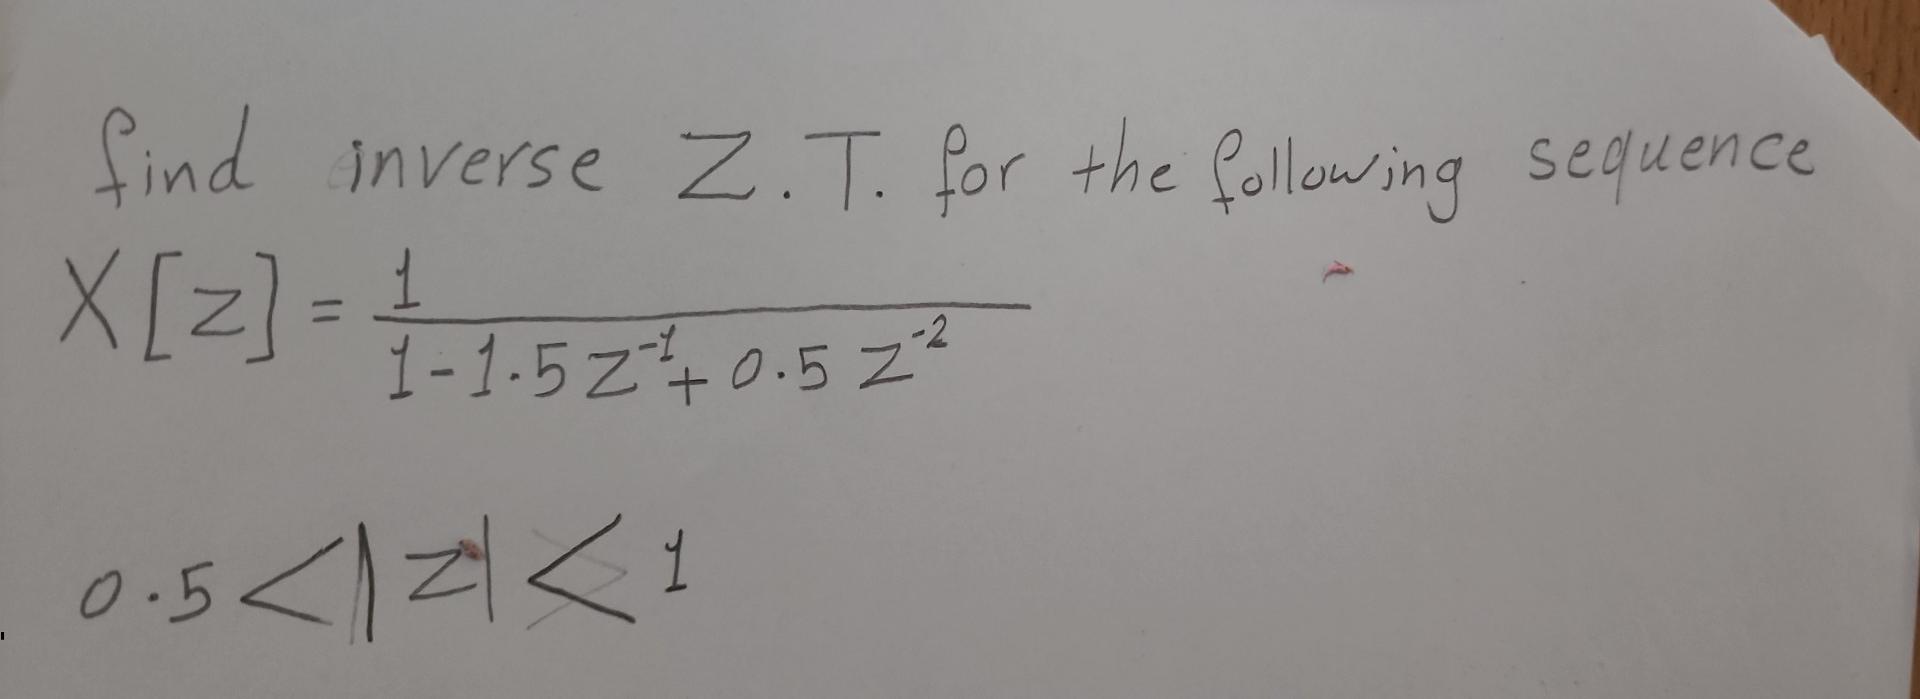 find inverse Z.T. for the following sequence
X[z] = 1 / 1-1.5z⁻¹+0.5z⁻²
0.5<|z|<1